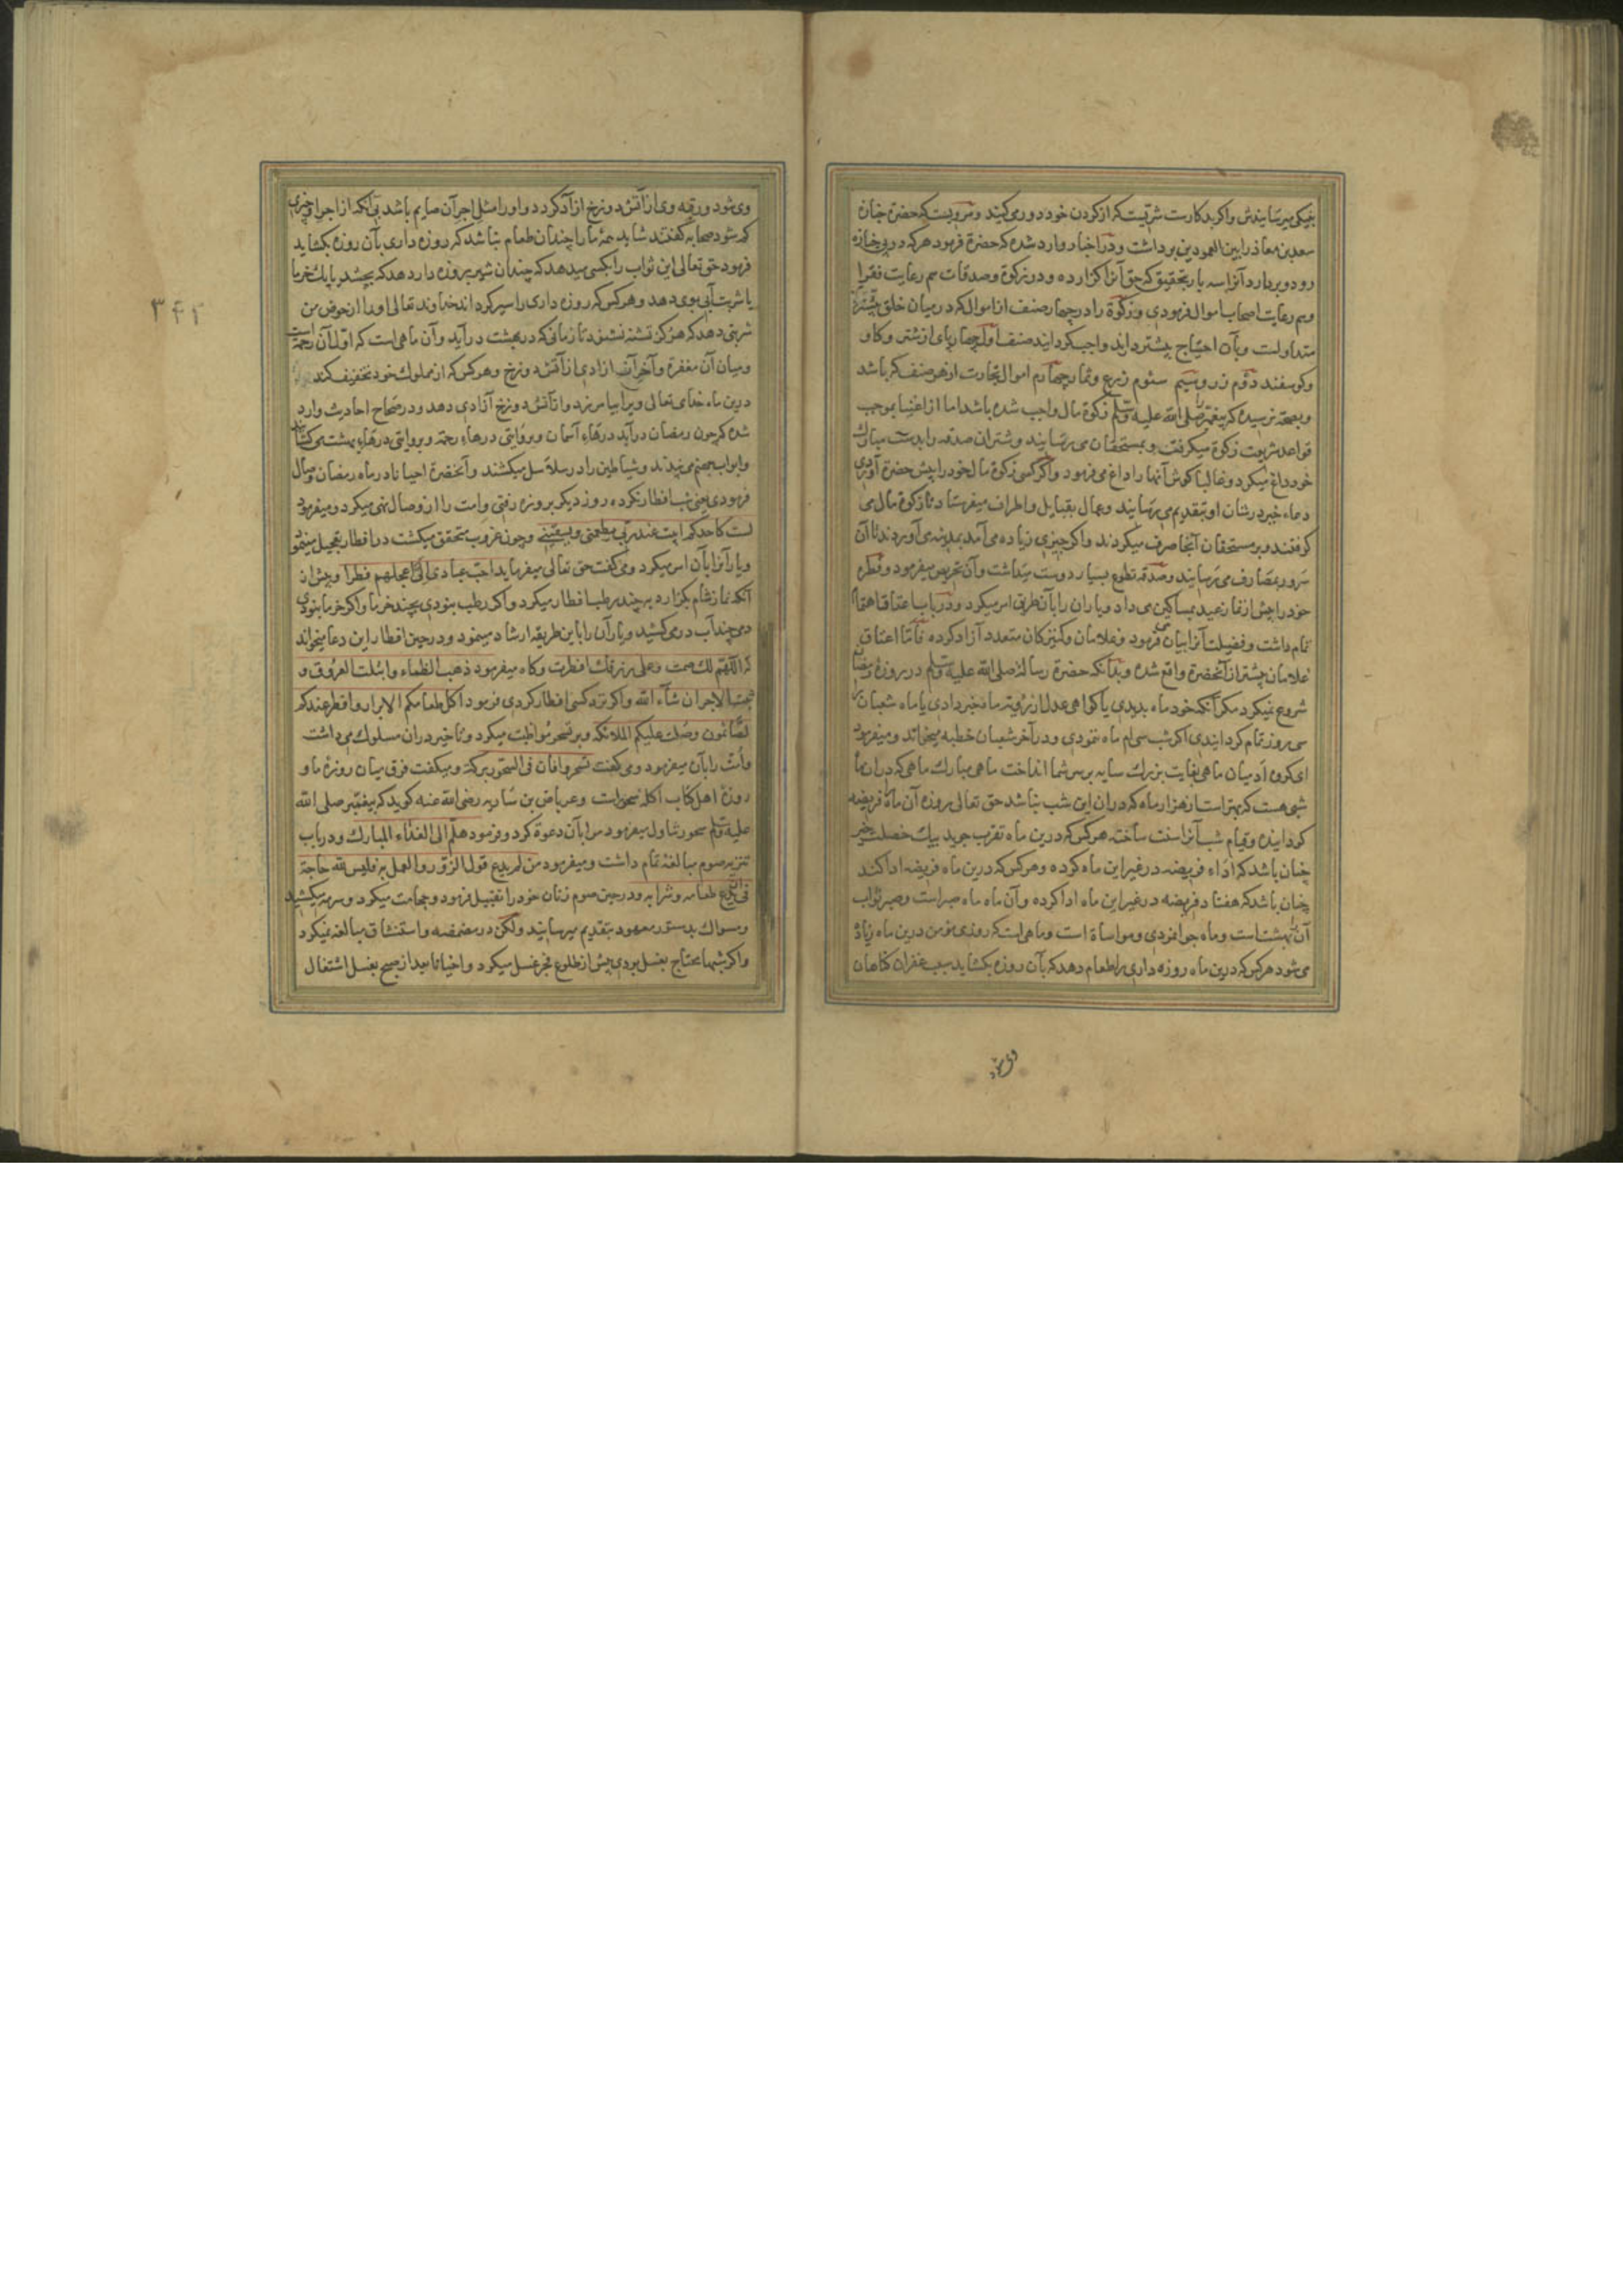 بنیکی میرسانیدش واکر بدکارست شریست که از کردن خود دور می کنید ومرویست که حضرة جنازه
سعد بن معاذ را بین العمودین برداشت ودر اخبار وارد شده که حضرة فرمود هر که در پی جنازه
رود وبردارد آنرا سه بار بتحقیق که حق آنرا کزارده ودر زکوة وصدقات هم رعایت فقرا
وهم رعایت اصحاب اموال فرمودی وزکوة را در چهار صنف از اموال که در میان خلق بیشتر
متداولست وبآن احتیاج بیشتر دارند واجب کردانید صنف اول چهار پای از شتر وکاو
وکوسفند دوم زر وسیم سئوم زرع وثمار چهارم اموال تجارت از هر صنف که باشد
وبصحة نرسیده که پیغمبر صلی الله علیه وسلم زکوة مال واجب شده باشد اما از اغنیا بموجب
قواعد شریعت زکوة میکرفت وبمستحقان می رسانید وشتران صدقه را بدست مبارک
خود داغ میکرد وغالبا کوش آنها را داغ می فرمود واکر کسی زکوة مال خود را پیش حضرة آوردی
دعاء خیر در شان او بتقدیم می رسانید وعمال بقبایل واطراف میفرستاد تا زکوة مال می
کرفتند وبر مستحقان آنجا صرف میکردند واکر چیزی زیاده می آمد بمدینه می آوردند تا آن
سرور بمصارف می رسانید وصدقه تطوع بسیار دوست میداشت وآن تحریص میفرمود وفطره
خود را پیش از نماز عید بمساکین می داد ویاران را بآن طریق امر میکرد ودر باب اعتاق اهتمام
تمام داشت وفضیلت آنرا بیان می فرمود وغلامان وکنیزکان متعدد آزاد کرده فاما اعتاق
غلامان بیشتر از آنحضرة واقع شده وبدانکه حضرة رسالة صلی الله علیه وسلم در روزه رمضان
شروع نمیکرد مکر آنکه خود ماه بدیدی یا کواهی عدل از رؤیة ماه خبر دادی یا ماه شعبان را
سی روز تمام کردانیدی اکر شب سی ام ماه ننمودی ودر آخر شعبان خطبه میخواند ومیفرمود
ای کروه آدمیان ماهی بغایت بزرک سایه بر سر شما انداخت ماهی مبارک ماهی که در آن ماه
شبی هست که بهتر است از هزار ماه که در آن این شب نباشد حق تعالی روزه آن ماه فریضه
کردانیده وقیام شب آنرا سنت ساخته هر کس که درین ماه تقرب جوید بیک خصلت خیر
چنان باشد که اداء فریضه در غیر این ماه کرده وهر کس که درین ماه فریضه ادا کند
چنان باشد که هفتاد فریضه در غیر این ماه ادا کرده وآن ماه ماه صبر است وصبر ثواب
آن بهشتست وماه جوانمردی ومواساة است وماهی است که روزی مؤمن درین ماه زیاده
می شود هر کس که درین ماه روزه داری را طعام دهد که بآن روزه بکشاید سبب غفران کناهان
وی شود
۳۴۲
وی شود ورقبه وی از آتش دوزخ ازاد کردد واو را مثل اجر آن صایم باشد بی آنکه از اجر او چیزی
کم شود صحابه کفتند شاید همه ما را چندان طعام نباشد که روزه داری بآن روزه بکشاید
فرمود حق تعالی این ثواب را بکسی میدهد که چندان شیر بروزه دار دهد که بچشد یا یک خرما
یا شربت آبی بوی دهد وهر کس که روزه داری را سیر کرداند خداوند تعالی او را از حوض من
شربتی دهد که هرکز تشنه نشود تا زمانی که در بهشت درآید وآن ماهی است که اول آن رحمة است
ومیان آن مغفرة وآخر آن ازادی از آتش دوزخ وهر کس که از مملوک خود تخفیف کند
درین ماه خدای تعالی ویرا بیامرزد واز آتش دوزخ آزادی دهد ودر صحاح احادیث وارد
شده که چون رمضان درآید درهاء آسمان وبروایتی درهاء رحمة وبروایتی درهاء بهشت می کشایند
وابواب جهنم می بندند وشیاطین را در سلاسل میکشند وآنحضرة احیانا در ماه رمضان وصال
فرمودی یعنی شب افطار نکرده روز دیکر بروزه رفتی وامت را از وصال نهی میکرد ومیفرمود
لست کاحدکم ابیت عند ربی یطعمنی ویسقینی وچون غروب متحقق میکشت در افطار تعجیل مینمود
ویارانرا بآن امر میکرد ومی کفت حق تعالی میفرماید احب عبادی الی اعجلهم فطرا وپیش از
آنکه نماز شام بکزارد بر چند رطب افطار میکرد واکر رطب نبودی بچند خرما واکر خرما نبودی
دمی چند آب در می کشید ویاران را باین طریقه ارشاد مینمود ودر حین افطار این دعا میخواند
که اللهم لک صمت وعلی رزقک افطرت وکاه میفرمود ذهب الظماء وابتلت العروق و
ثبت الاجر ان شآء الله واکر نزد کسی افطار کردی فرمود اکل طعامکم الابرار وافطر عندکم
الصائمون وصلت علیکم الملائکه وبر تسحر مواظبت میکرد وتاخیر در آن مسلوک می داشت
وامت را بآن میفرمود ومی کفت تسحروا فان فی السحور برکة ومیکفت فرق میان روزه ما و
روزه اهل کتاب اکله سحر است وعرباض بن ساریه رضی الله عنه کوید که پیغمبر صلی الله
علیه وسلم سحور تناول میفرمود مرا بآن دعوة کرد وفرمود هلم الی الغذاء المبارک ودر باب
تنزیه صوم مبالغه تمام داشت ومیفرمود من لم یدع قول الزور والعمل به فلیس لله حاجة
فی ان یدع طعامه وشرابه ودر حین صوم زنان خود را تقبیل فرمود وحجامت میکرد وسرمه میکشید
ومسواک بدستور معهود بتقدیم میرسانید ولکن در مضمضه واستنشاق مبالغه نمیکرد
واکر شبها محتاج بغسل بودی پیش از طلوع فجر غسل میکرد واحیانا بعد از صبح بغسل اشتغال